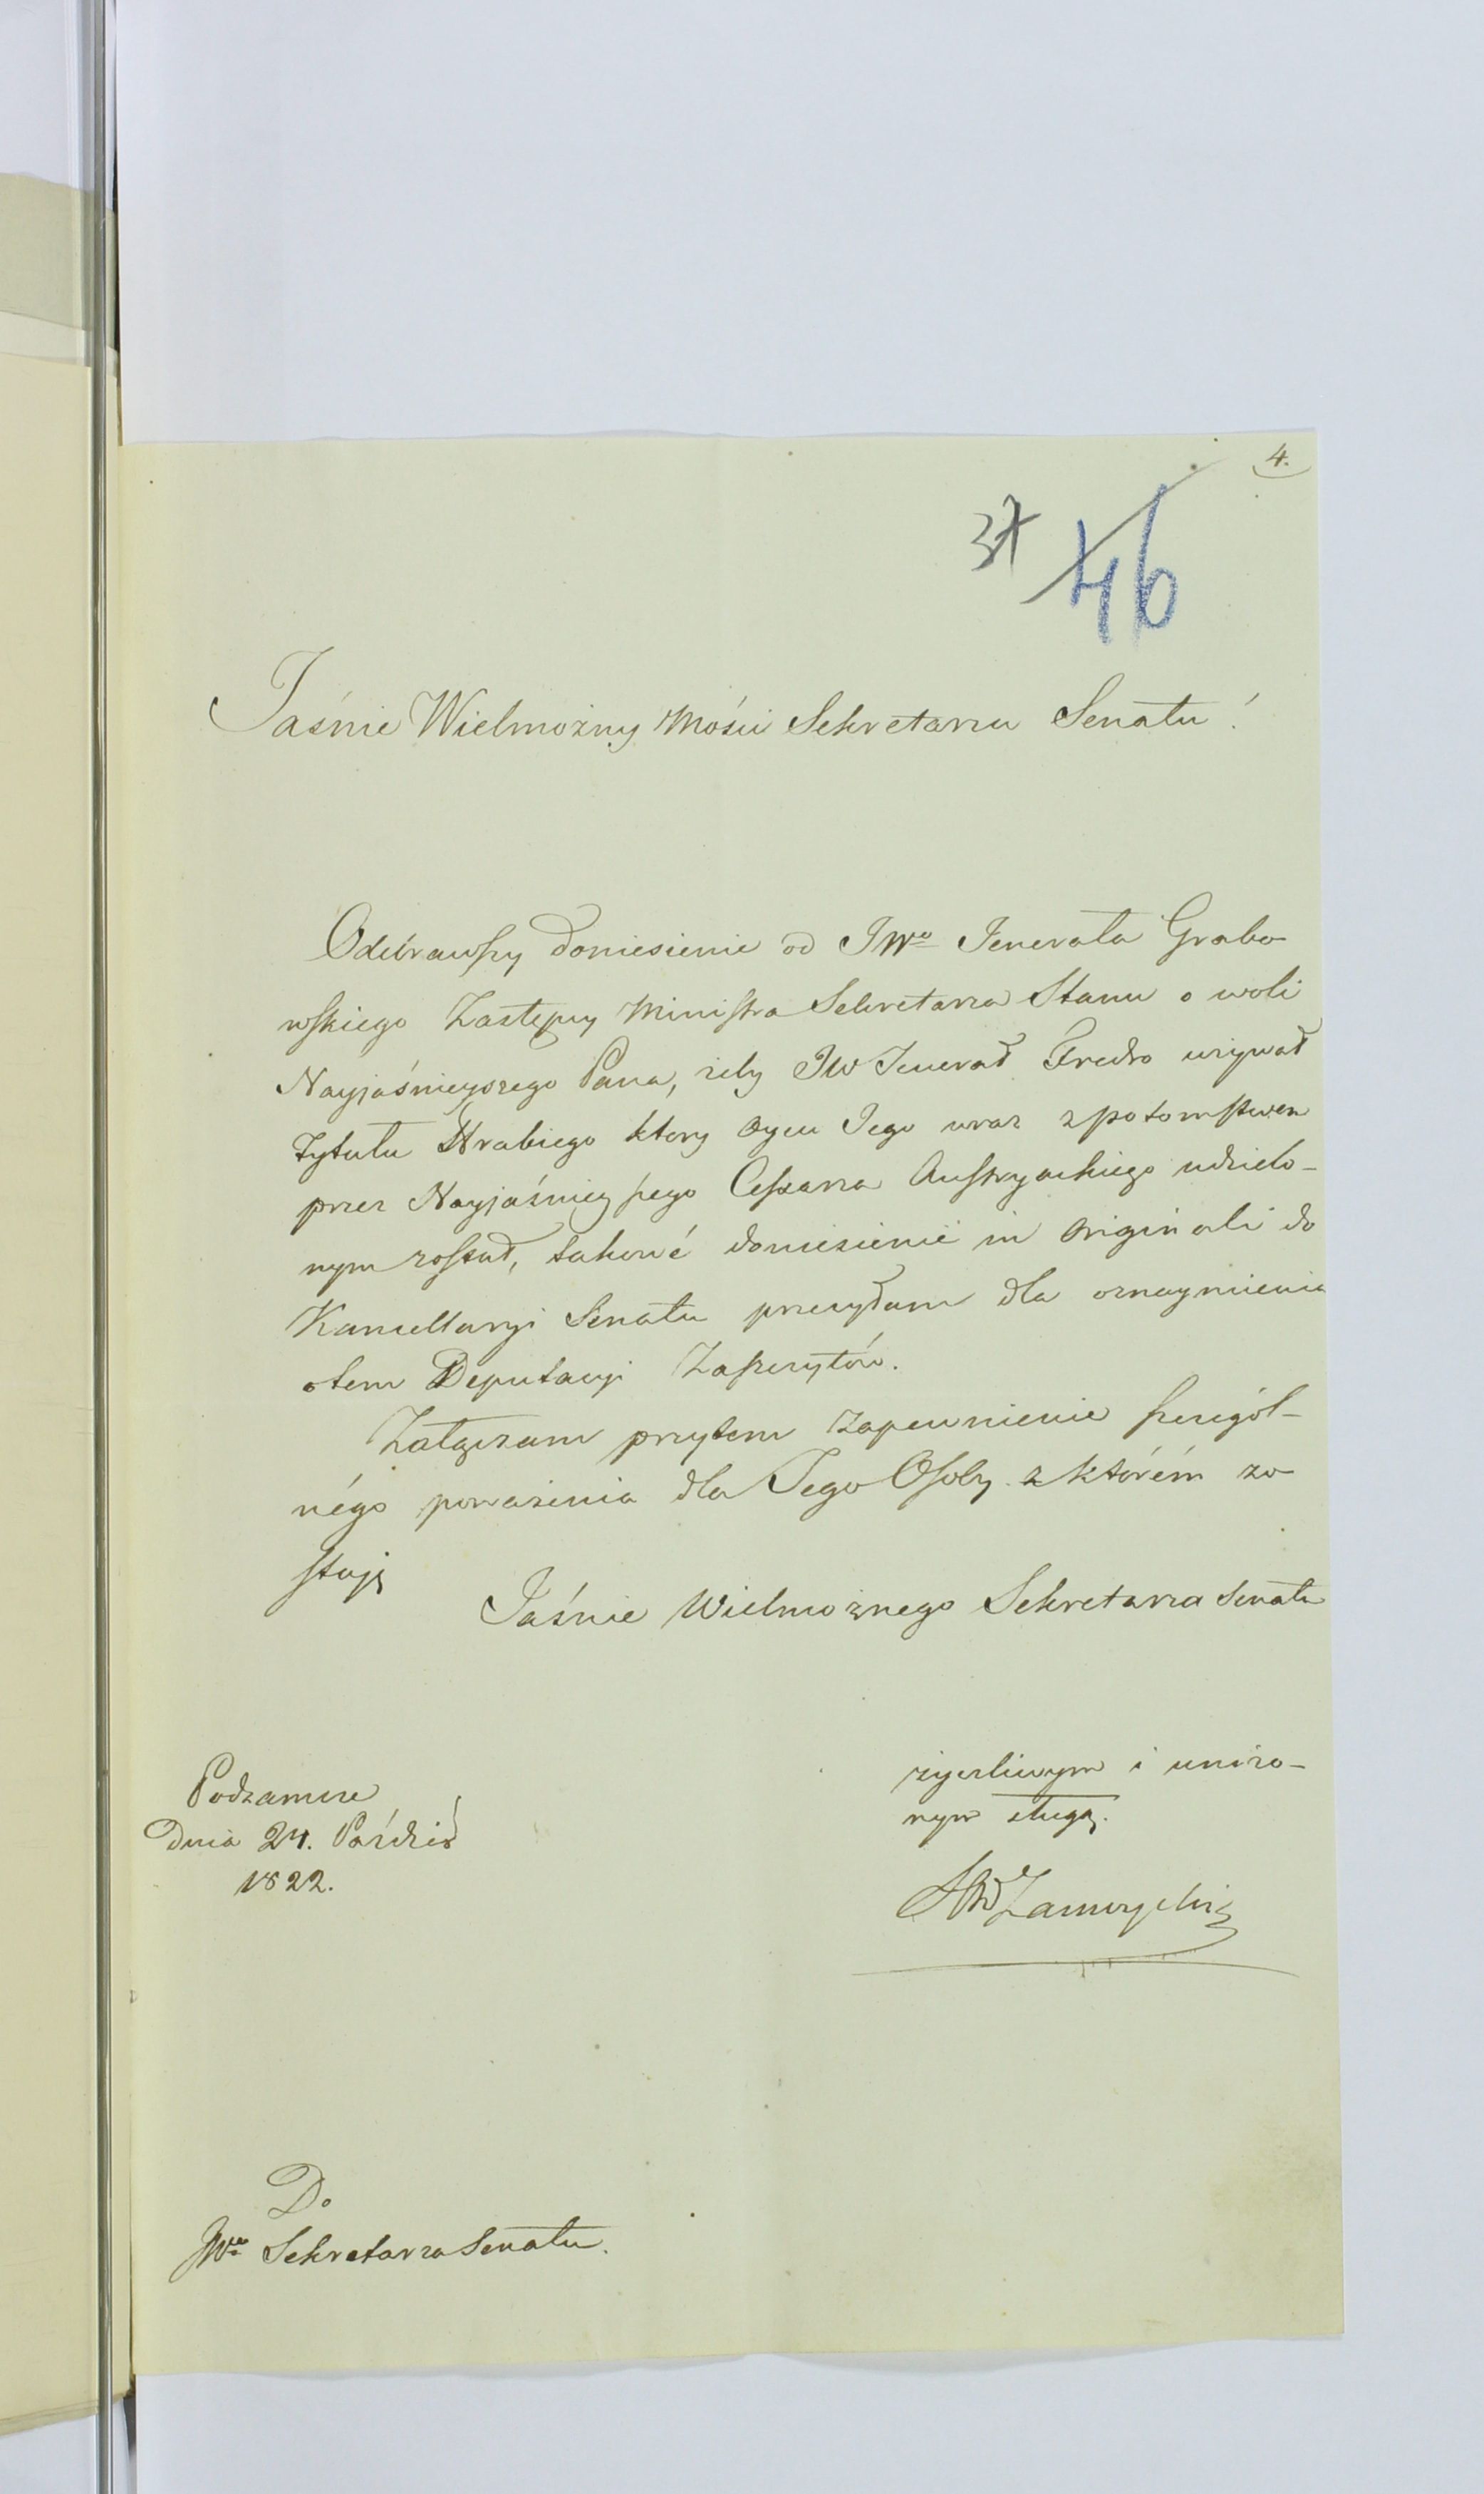 4.
37 46
Jaśnie Wielmożny Mości Sekretarzu Senatu!
Odebrawszy doniesienie od JWo Jenerała Grabo-
wskiego Zastępcy Ministra Sekretarza Stanu o woli
Nayjaśnieyszego Pana, żeby JW Jenerał Fredro używał
tytułu Hrabiego ktory Oycu Jego wraz z potomstwem
przez Nayjaśnieyszego Cesarza Austryackiego udzielo-
nym został, takowé doniesienié in originali do
Kancellaryi Senatu przesyłam dla oznaymienia
otem Deputacyi Zaszczytów.
Załączam przytem zapewnienie szczegól-
négo poważenia dla Jego Osoby z którém zo-
staję
Jaśnie Wielmożnego Sekretarza Senatu
życzliwym i uniżo-
nym sługą.
Podzamcze
Dnia 24. Paździer
1822.
Zamoyski
Do
JWo Sekretarza Senatu.